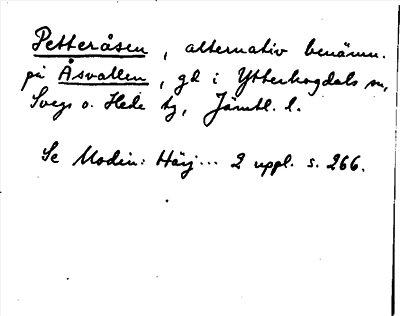 Petteråsen, alternativ benämn.
på Åsvallen, gd i Ytterhogdals sn,
Svegs o. Hede tg, Jämtl. l.
Se Modin: Härj... 2 uppl. s. 266.